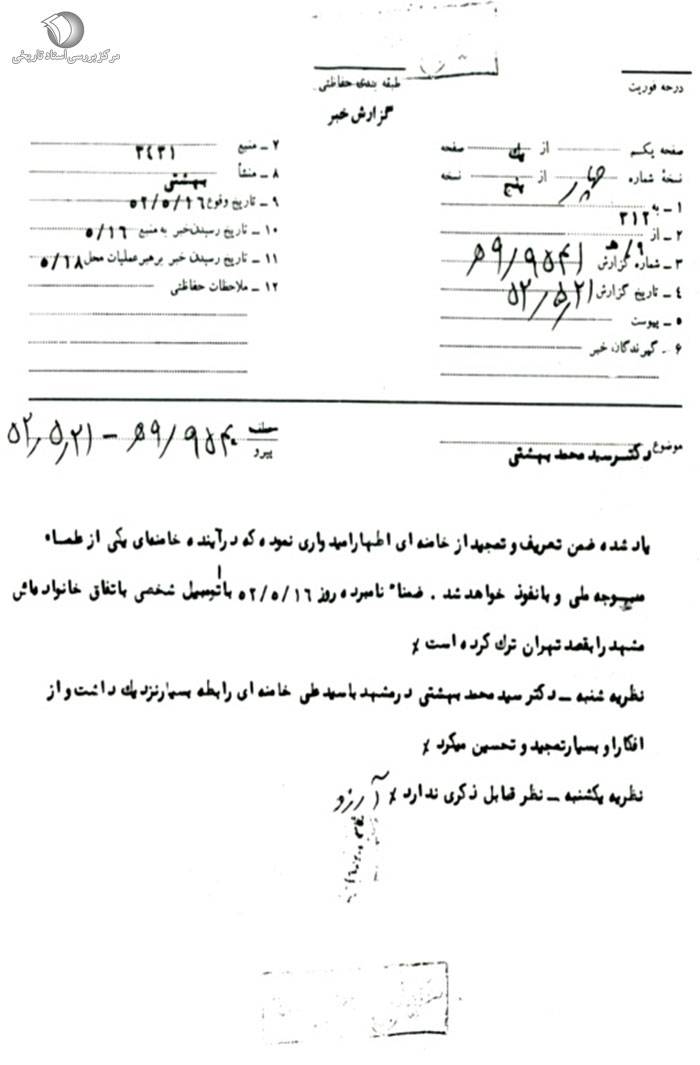 مرکز بررسی اسناد تاریخی
درجه فوریت
طبقه بندی حفاظتی
گزارش خبر
صفحه یکم از یک صفحه
نسخهٔ شماره چهار از پنج نسخه
۱ ـ به ۳۱۲
۲ ـ از ۹/ه
۳ ـ شماره گزارش ۹۵۴۱/ه۹
۴ ـ تاریخ گزارش ۵۲/۵/۲۱
۵ ـ پیوست
۶ ـ گیرندگان خبر
۷ ـ منبع ۳۴۳۱
۸ ـ منشأ بهشتی
۹ ـ تاریخ وقوع ۵۲/۵/۱۶
۱۰ ـ تاریخ رسیدن خبر به منبع ۵/۱۶
۱۱ ـ تاریخ رسیدن خبر برهبر عملیات محل ۵/۱۸
۱۲ ـ ملاحظات حفاظتی
موضوع دکتر سید محمد بهشتی
عطف
پیرو ۹۵۴۰/ه۹ – ۵۲/۵/۲۱
یاد شده ضمن تعریف و تمجید از خامنه ای اظهار امیدواری نموده که درآینده خامنه‌ای یکی از علماء
موجه ملی و بانفوذ خواهد شد . ضمناً نامبرده روز ۵۲/۵/۱۶ با اتومبیل شخصی باتفاق خانواده‌اش
مشهد را بقصد تهران ترک کرده است ٪
نظریه شنبه ـ دکتر سید محمد بهشتی درمشهد باسیدعلی خامنه ای رابطه بسیارنزدیک داشت و از
افکاراو بسیارتمجید و تحسین میکرد ٪
نظریه یکشنبه ـ نظر قابل ذکری ندارد ٪ آرزو